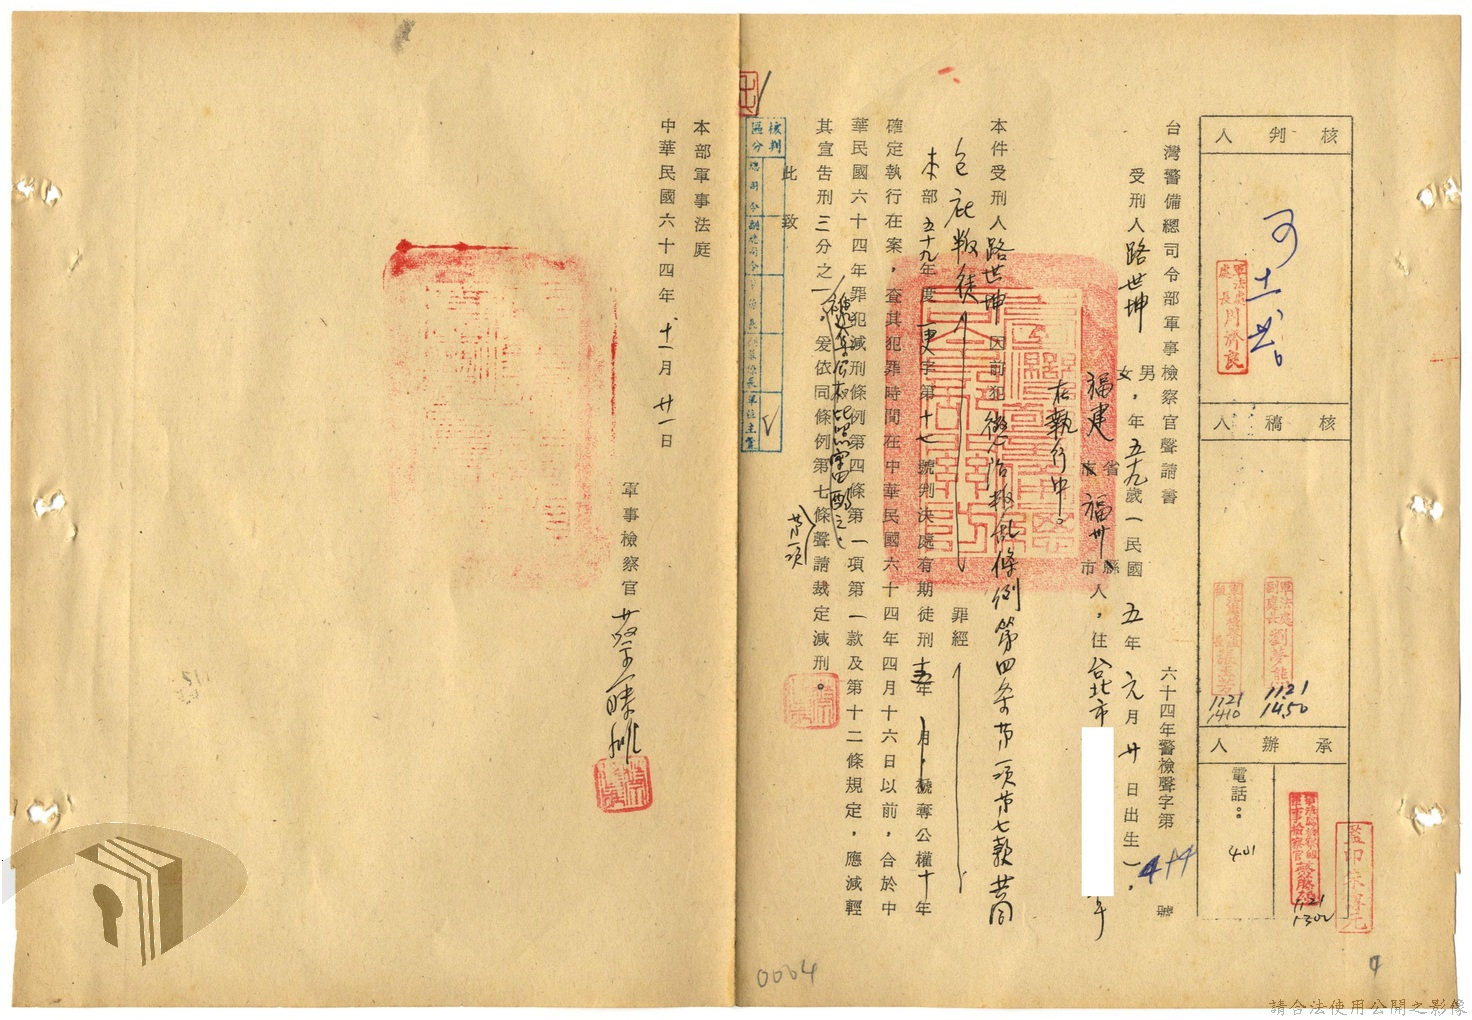 核判人
可
軍法處處長周濟良
核稿人
軍法處副處長劉夢熊
1121
1450
1121
1410
承辦人
1121
1302
電話：401
監印朱尊元
台灣警備總司令部軍事檢察官聲請書
六十四年警檢聲字第 號
受刑人路世坤 男女，年五九歲（民國五年元月廿日出生），
福建省市福州縣市人，住台北市
在執行中。
本件受刑人路世坤因前犯懲治叛亂條例第四條第一項第七款共同
包庇叛徒罪經
本部五十九年度更字第十七號判決處有期徒刑五年 月，褫奪公權十年
確定執行在案，查其犯罪時間在中華民國六十四年四月十六日以前，合於中
華民國六十四年罪犯減刑條例第四條第一項第一款及第十二條規定，應減輕
其宣告刑三分之一，褫奪公權比照審酌之，爰依同條例第七條第一項聲請裁定減刑。
此致
核判區分
總司令
副總司令
單位主管
本部軍事法庭
中華民國六十四年十一月廿一日
軍事檢察官蔡藤雄
0004
請合法使用公開之影像